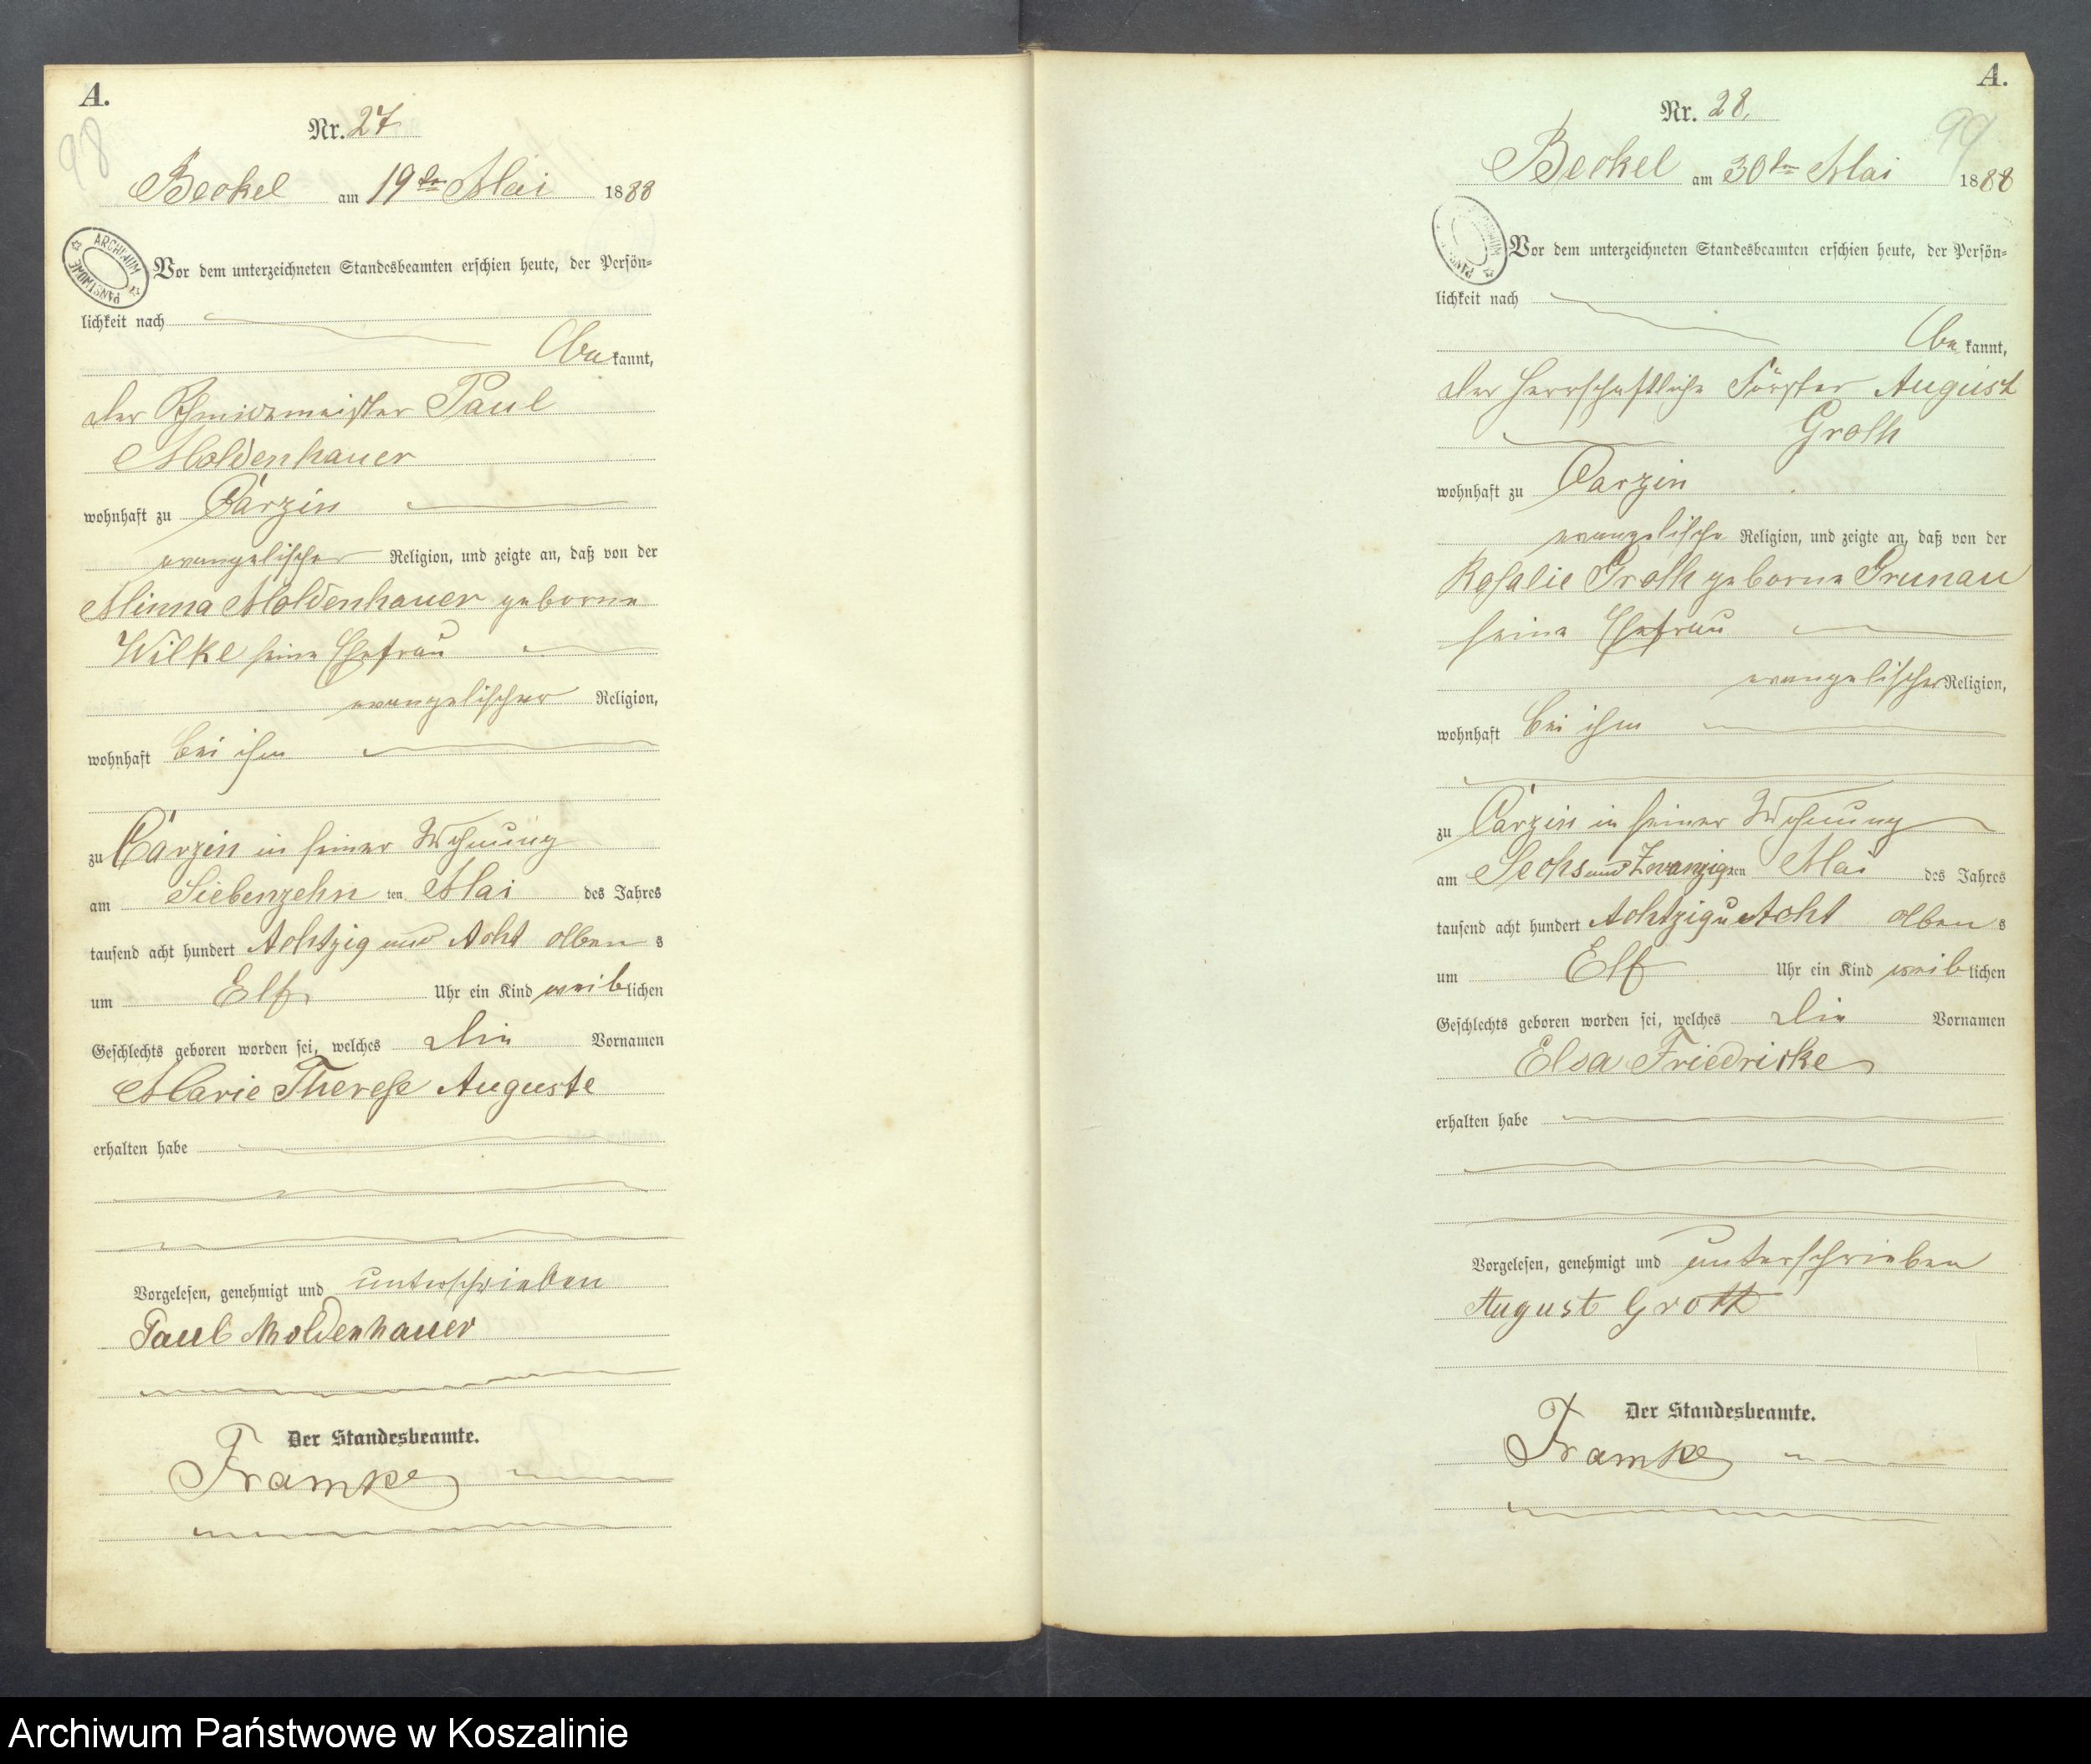 A.
98
Nr. 27
Beckel am 19ten Mai 1888
ARCHIWUM PAŃSTWOWE
Vor dem unterzeichneten Standesbeamten erschien heute, der Persön-
lichkeit nach
bekannt,
der Schmiedemeister Paul
Moldenhauer
wohnhaft zu Carzin
evangelischer Religion, und zeigte an, daß von der
Minna Moldenhauer geborne
Wilke seine Ehefrau
evangelischer Religion,
wohnhaft bei ihm
zu Carzin in seiner Wohnung
am Siebenzehn ten Mai des Jahres
tausend acht hundert Achtzig und Acht Abends
um Elf Uhr ein Kind weiblichen
Geschlechts geboren worden sei, welches die Vornamen
Marie Therese Auguste
erhalten habe
Vorgelesen, genehmigt und unterschrieben
Paul Moldenhauer
Der Standesbeamte.
Framke
A.
99
Nr. 28.
Beckel am 30ten Mai 1888
Vor dem unterzeichneten Standesbeamten erschien heute, der Persön-
lichkeit nach
bekannt,
der herrschaftliche Förster August
Groth
wohnhaft zu Carzin
evangelische Religion, und zeigte an, daß von der
Rosalie Groth geborne Grunau
seine Ehefrau
evangelischer Religion,
wohnhaft bei ihm
zu Carzin in seiner Wohnung
am Sechs und Zwanzigten Mai des Jahres
tausend acht hundert Achtzig u Acht Abends
um Elf Uhr ein Kind weiblichen
Geschlechts geboren worden sei, welches die Vornamen
Elsa Friedricke
erhalten habe
Vorgelesen, genehmigt und unterschrieben
August Groth
Der Standesbeamte.
Framke
Archiwum Państwowe w Koszalinie